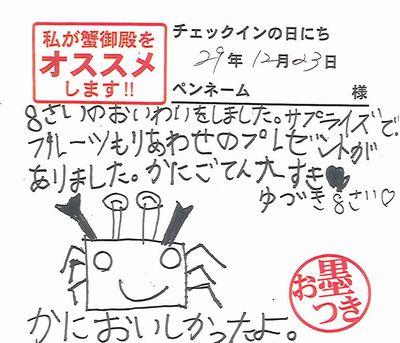 私が蟹御殿を
オススメ
します!!
チェックインの日にち
29年12月23日
ペンネーム 様
8さいのおいわいをしました。サプライズで
フルーツもりあわせのプレゼントが
ありました。かにごてん大すき♥
ゆづき8さい♡
お墨つき
かにおいしかったよ。